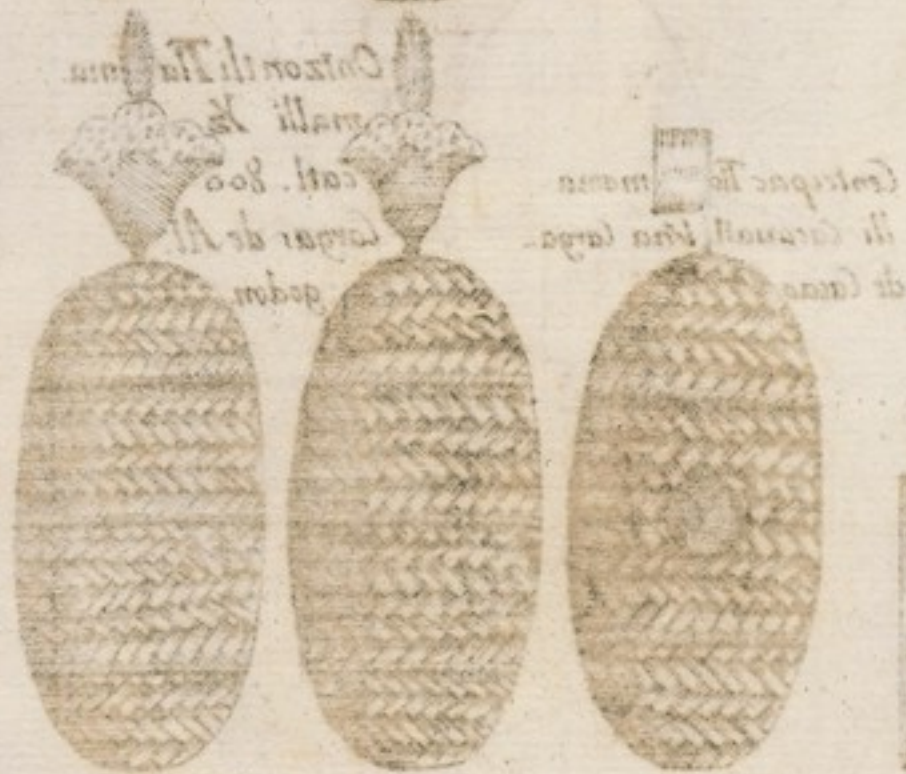 Ontzontli Tla mama
malli Yca
catl. 800
Cargas de Al
godon
Centecpac Tlo mama
lli Cacauatl Una Carga
de Cacao